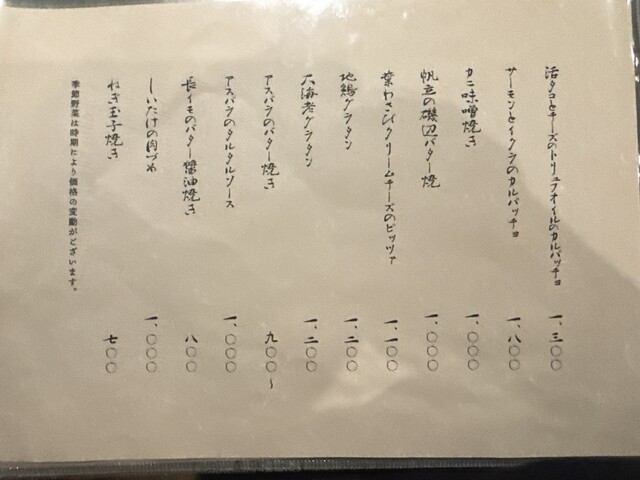 活タコとチーズのトリュフオイルのカルパッチョ 一、三〇〇
サーモンとイクラのカルパッチョ 一、八〇〇
カニ味噌焼き 一、〇〇〇
帆立の磯辺バター焼 一、〇〇〇
葉わさびクリームチーズのピッツァ 一、一〇〇
地鶏グラタン 一、二〇〇
大海老グラタン 一、二〇〇
アスパラのバター焼き 九〇〇〜
アスパラのタルタルソース 一、〇〇〇
長イモのバター醤油焼き 八〇〇
しいたけの肉づめ 一、〇〇〇
ねぎ玉子焼き 七〇〇
季節野菜は時期により価格の変動がございます。